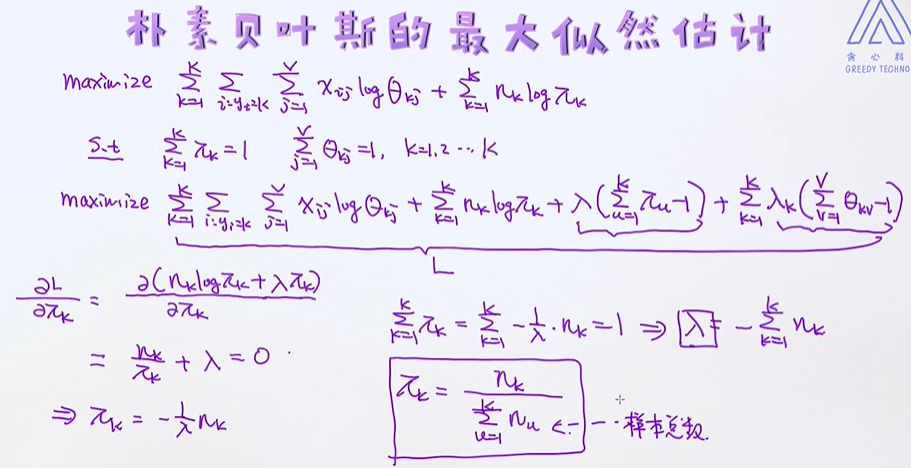 朴素贝叶斯的最大似然估计
贪心科
GREEDY TECHNO
maximize ∑_{k=1}^{K} ∑_{i:y_i=k} ∑_{j=1}^{V} x_{ij} log θ_{kj} + ∑_{k=1}^{K} n_k log π_k
s.t ∑_{k=1}^{K} π_k = 1 ∑_{j=1}^{V} θ_{kj} = 1, k=1,2 ⋯ K
maximize ∑_{k=1}^{K} ∑_{i:y_i=k} ∑_{j=1}^{V} x_{ij} log θ_{kj} + ∑_{k=1}^{K} n_k log π_k + λ(∑_{u=1}^{K} π_u - 1) + ∑_{k=1}^{K} λ_k(∑_{v=1}^{V} θ_{kv} - 1)
L
∂L/∂π_k = ∂(n_k log π_k + λπ_k)/∂π_k
= n_k/π_k + λ = 0
⇒ π_k = -1/λ n_k
∑_{k=1}^{K} π_k = ∑_{k=1}^{K} -1/λ · n_k = 1 ⇒ λ = - ∑_{k=1}^{K} n_k
π_k = n_k / ∑_{u=1}^{K} n_u <- - ·· 样本总数.